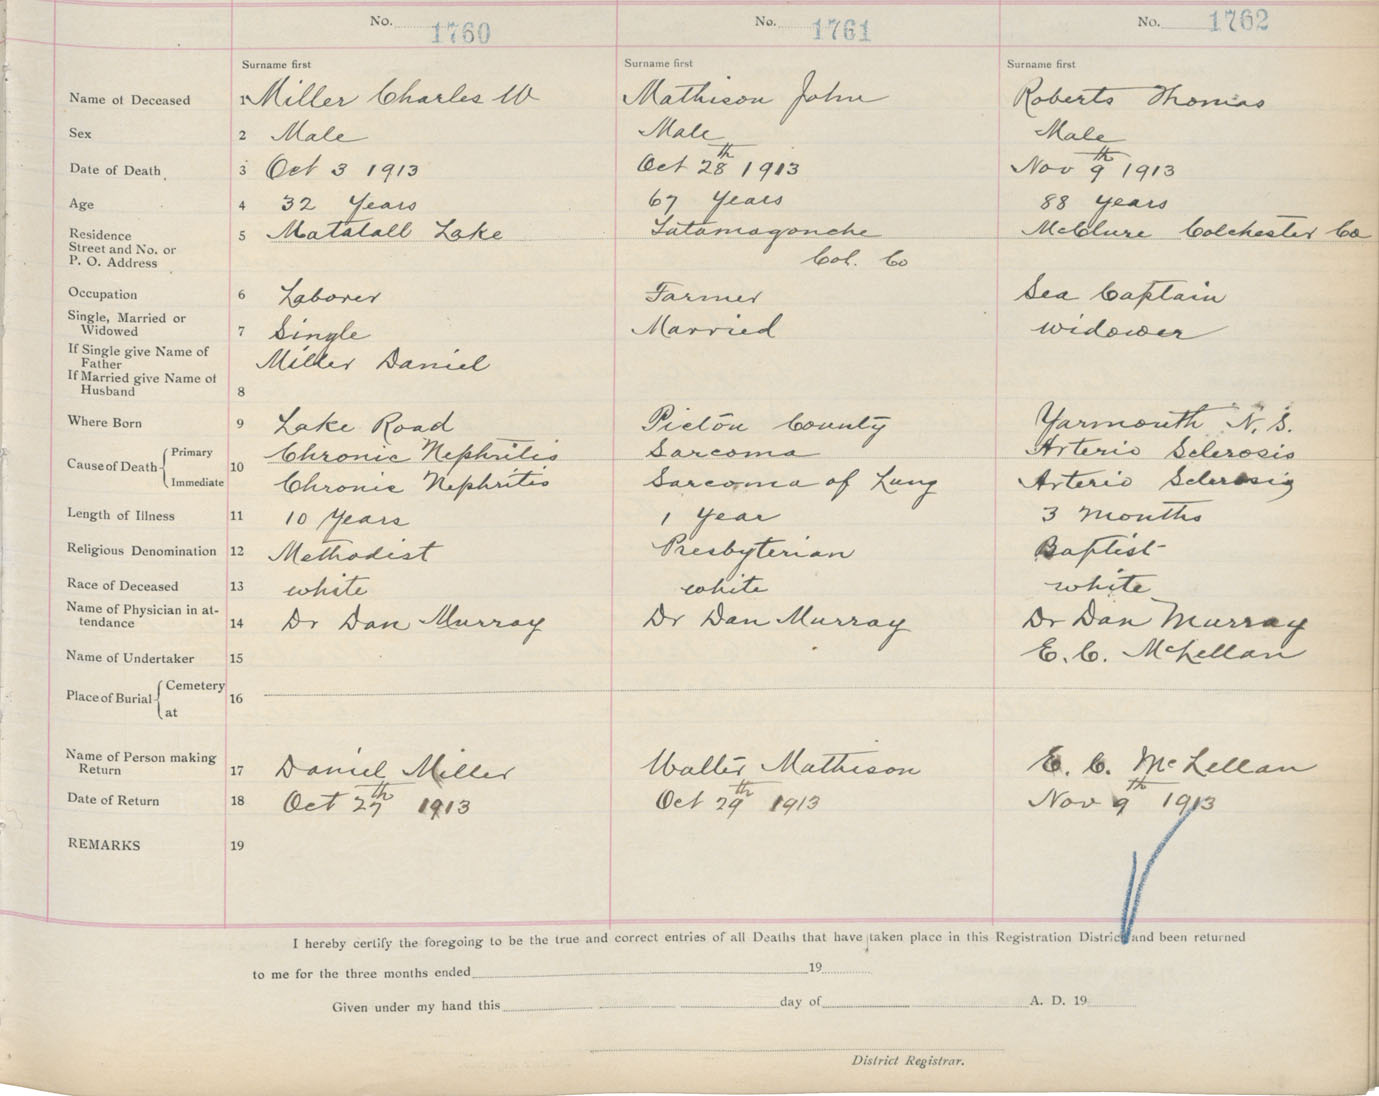 No. 1760 No. 1761 No. 1762
Surname first Surname first Surname first
Name of Deceased 1 Miller Charles W Mathison John Roberts Thomas
Sex 2 Male Male Male
Date of Death 3 Oct 3 1913 Oct 28th 1913 Nov 9th 1913
Age 4 32 Years 67 Years 88 years
Residence 5 Matatall Lake Tatamagouche McClure Colchester Co
Street and No. or
P. O. Address Col. Co
Occupation 6 Laborer Farmer Sea Captain
Single, Married or
Widowed 7 Single Married widower
If Single give Name of
Father Miller Daniel
If Married give Name of
Husband 8
Where Born 9 Lake Road Pictou County Yarmouth N.S.
Cause of Death Primary 10 Chronic Nephritis Sarcoma Arterio Sclerosis
Immediate Chronic Nephritis Sarcoma of Lung Arterio Sclerosis
Length of Illness 11 10 Years 1 Year 3 months
Religious Denomination 12 Methodist Presbyterian Baptist
Race of Deceased 13 white white white
Name of Physician in at-
tendance 14 Dr Dan Murray Dr Dan Murray Dr Dan Murray
Name of Undertaker 15 E. C. McLellan
Place of Burial Cemetery 16
at
Name of Person making
Return 17 Daniel Miller Walter Mathison E. C. McLellan
Date of Return 18 Oct 27th 1913 Oct 29th 1913 Nov 9th 1913
REMARKS 19
I hereby certify the foregoing to be the true and correct entries of all Deaths that have taken place in this Registration District and been returned
to me for the three months ended 19
Given under my hand this day of A. D. 19
District Registrar.